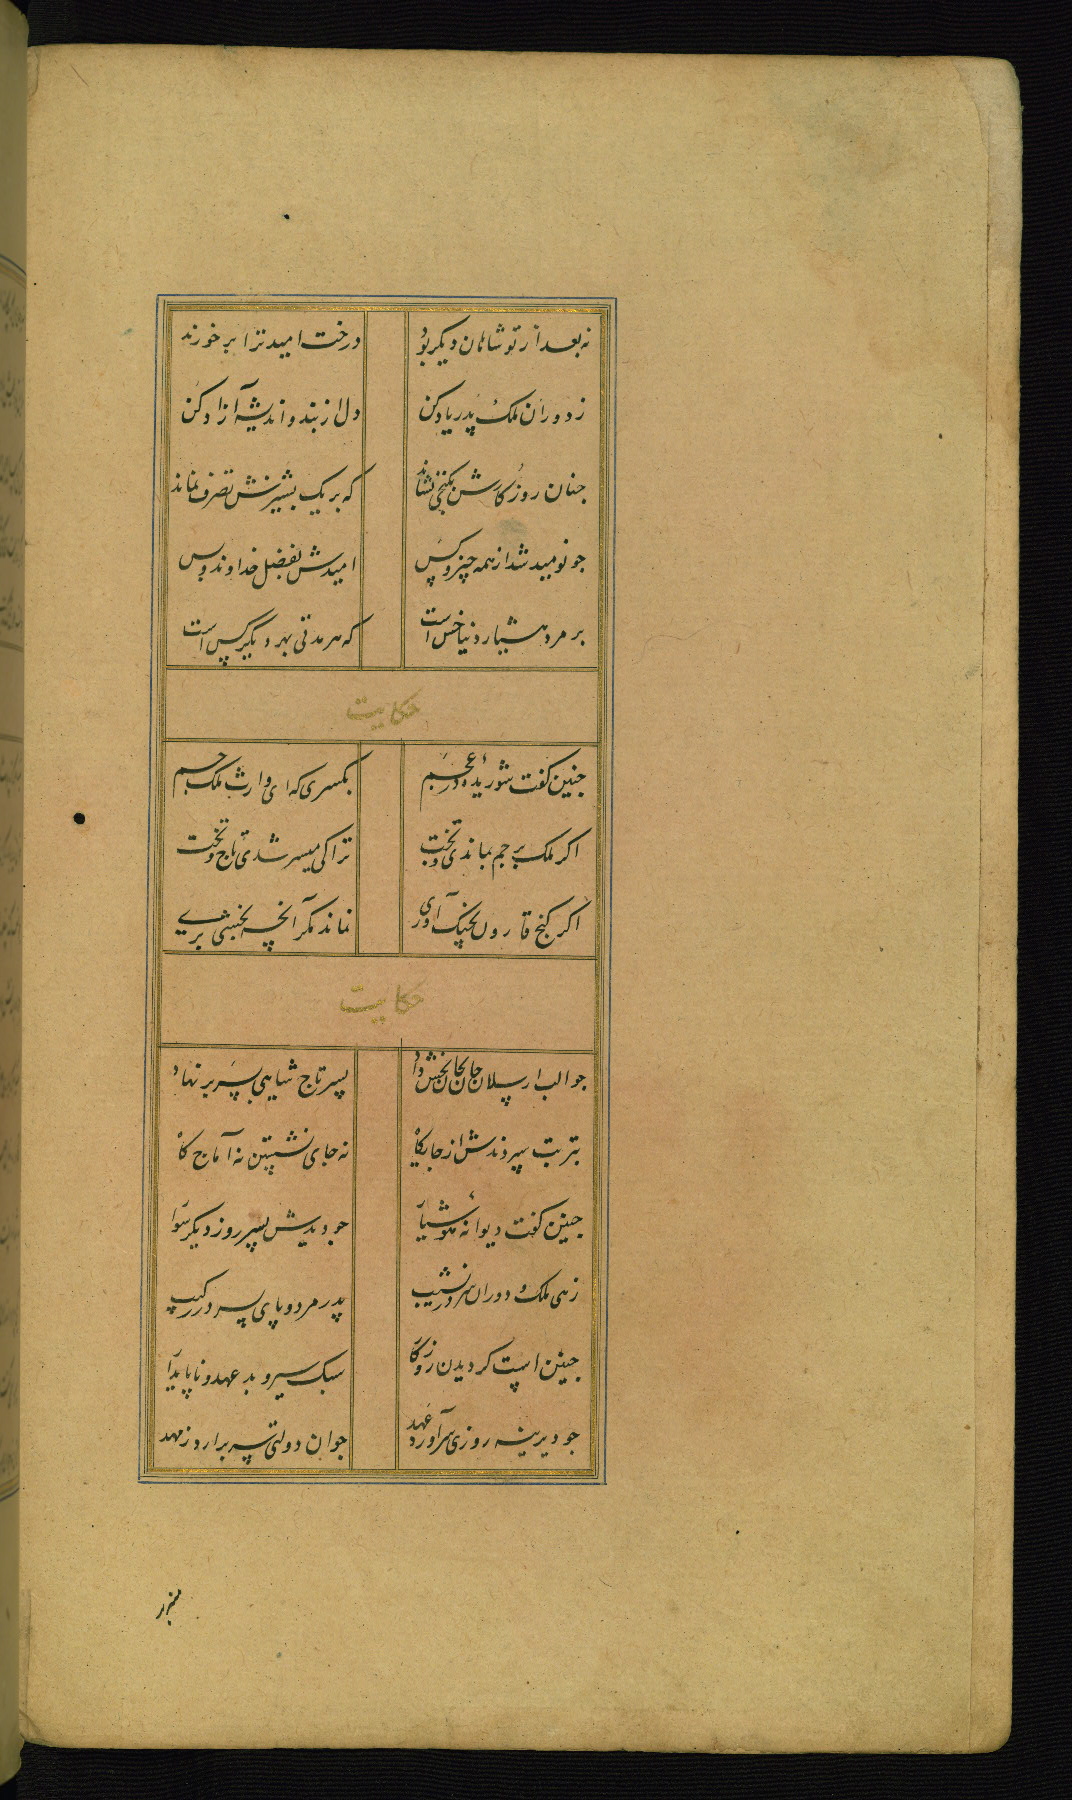 نه بعد از تو شاهان دیگر بود درخت امید ترا بر خورند
ز دوران ملک پدر یاد کن دل از بند و اندیشه آزاد کن
جنان روزکارش بکنجی نشاند که بر یک بشیزش تصرف نماند
جو نومید شد از همه چیز و کس امیدش بفضل خداوند و بس
بر مرد هشیار دنیا خس است که هر مدتی بهر دیکر کس است
حکایت
جنین کفت شوریدهٔ در عجم بکسری که ای وارث ملک جم
اکر ملک بر جم بماندی و بخت ترا کی میسر شدی تاج و تخت
اکر کنج قارون بجنک آوری نماند مکر آنچه بخشی بری
حکایت
جو الب ارسلان جان بجان بخش داد پسر تاج شاهی بسر بر نهاد
بتربت سپردندش از جایکاه نه جای نشستن نه آماج کاه
جنین کفت دیوانهٔ هوشیار جو دیدش پسر روز دیکر سوار
زهی ملک و دوران سر در نشیب پدر مرد و پای پسر در رکیب
جنین است کردیدن روزکار سبک سیر و بد عهد و ناپایدار
جو دیرینه روزی سر آورد عهد جوان دولتی سر برارد ز مهد